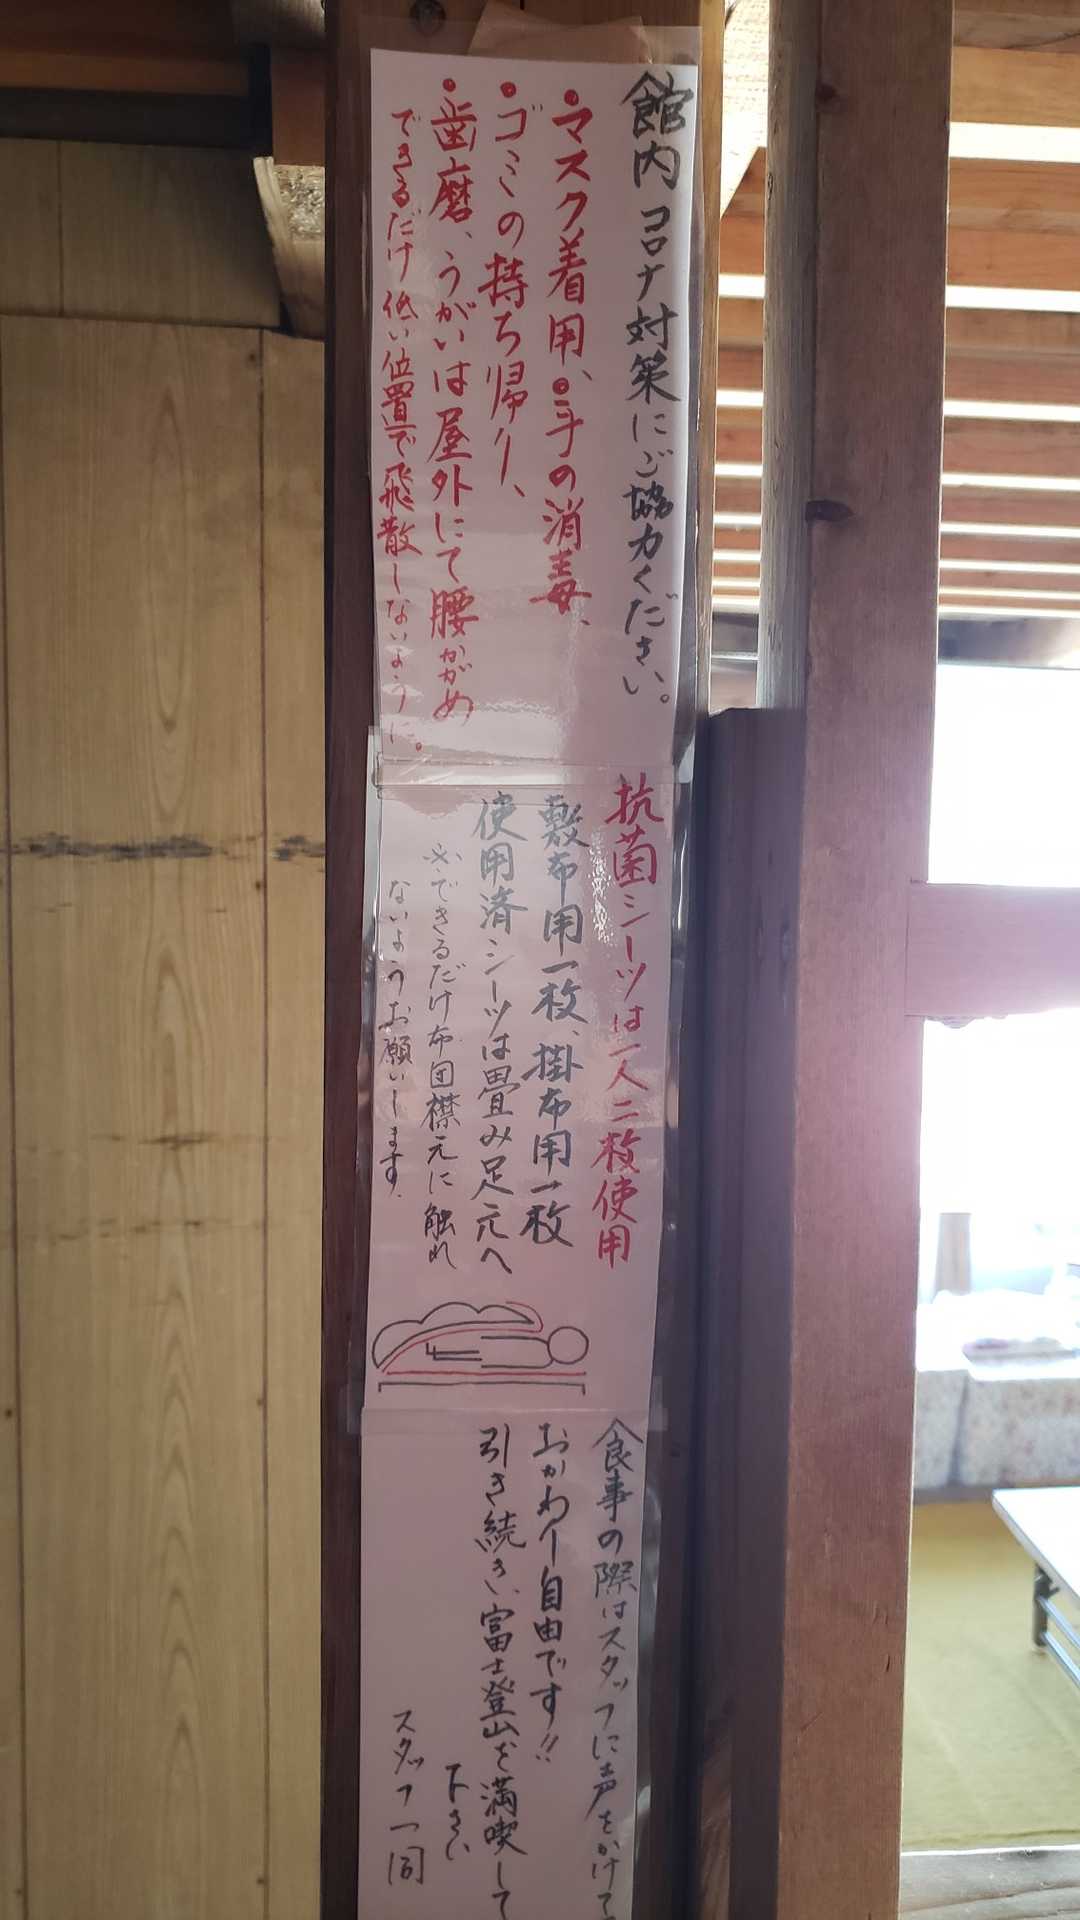 館内コロナ対策にご協力ください。
・マスク着用、・手の消毒、
・ゴミの持ち帰り、
・歯磨、うがいは屋外にて腰かがめ
できるだけ低い位置で飛散しないように。
抗菌シーツは一人二枚使用
敷布用一枚、掛布用一枚
使用済シーツは畳み足元へ
※できるだけ布団襟元に触れ
ないようお願いします.
食事の際はスタッフに声をかけて
おかわり自由です!!
引き続き、富士登山を満喫して
下さい
スタッフ一同